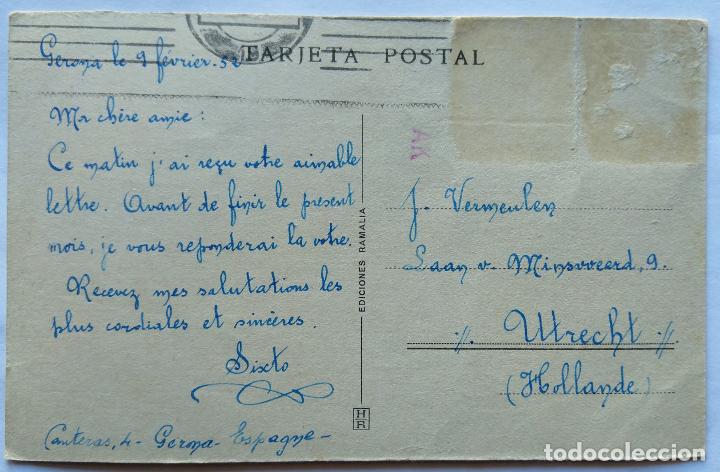 TARJETA POSTAL
Gerona le 9 février. 52
Ma chère amie :
Ce matin j'ai reçu votre aimable
lettre. Avant de finir le présent
mois, je vous reponderai la votre.
Recevez mes salutations les
plus cordiales et sincères.
Sixto
Canteras, 4 - Gerona - Espagne -
EDICIONES RAMALIA
HR
AK
J. Vermeulen
Laan v. Minsweerd, 9.
Utrecht
(Hollande)
todocoleccion